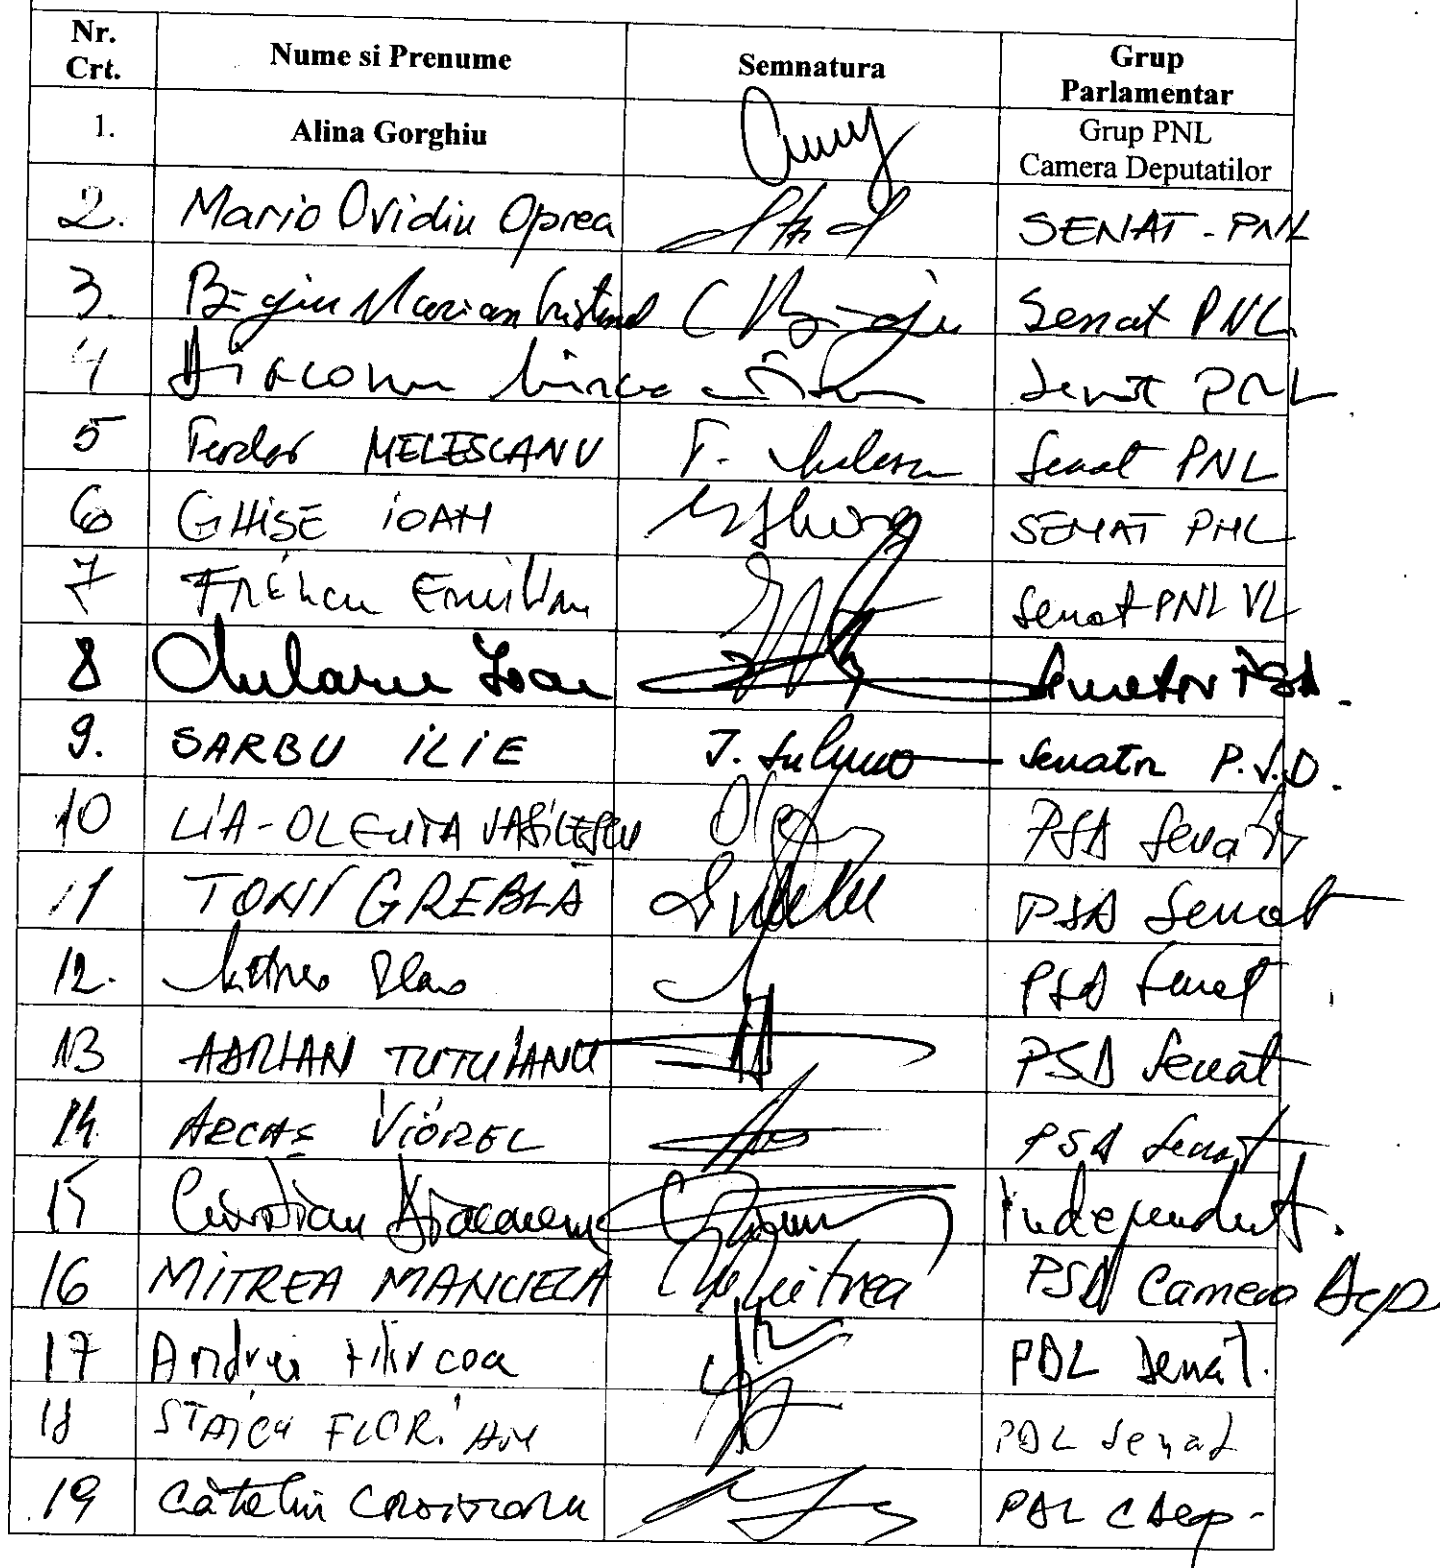 Nr. Crt. Nume si Prenume Semnatura Grup Parlamentar
1. Alina Gorghiu Grup PNL Camera Deputatilor
2. Mario Ovidiu Oprea SENAT - PNL
3. Bigiu Marian Cristinel Senat PNL
4 Diaconu Mircea Senat PNL
5 Teodor MELESCANU T. Melescanu Senat PNL
6 GHISE IOAN SENAT PNL
7 Frâncu Emilian Senat PNL VL
8 Chelaru Ioan Senator PSD.
9. SARBU ILIE Senator P.S.D.
10 LIA-OLGUTA VASILESCU PSD Senat
11 TONI GREBLĂ PSD Senat
12. PSD Senat
13 ADRIAN TUTUIANU PSD Senat
14 ARCAȘ VIOREL PSD Senat
15 Cristian Diaconescu Independent.
16 MITREA MANUELA Mitrea PSD Camera Dep
17 Andrei Filircoa PDL Senat.
18 STAICU FLORIAN PDL Senat
19 Cătălin CROITORU PDL C Dep -